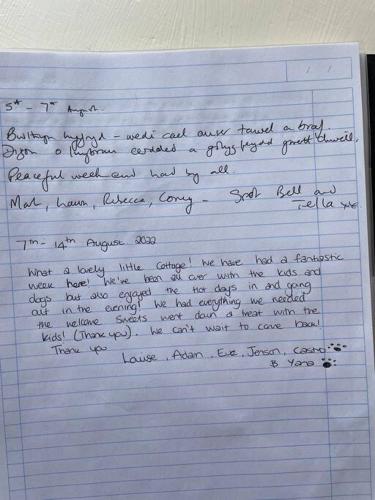 5th - 7th August.
Bwthyn hyfryd - wedi cael amser tawel a braf.
Digon o lwybrau cerdded a golygfeydd
Peaceful week end had by all.
Mah, Laura, Rebecca, - Spot Bell and
Tella xx
7th - 14th August 2022
What a lovely little cottage! We have had a fantastic
week here! We've been all over with the kids and
dogs but also enjoyed the hot days in and going
out in the evening! We had everything we needed
the welcome sweets went down a treat with the
kids! (Thank you). We can't wait to come back!
Thank you
Louise, Adam, Eve, Jenson,
& Yana